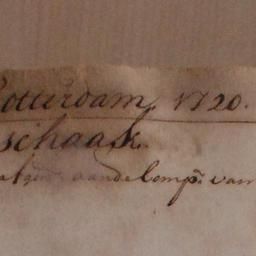 Rotterdam, 1720.
schaak.
aande Comp.ᵉ van